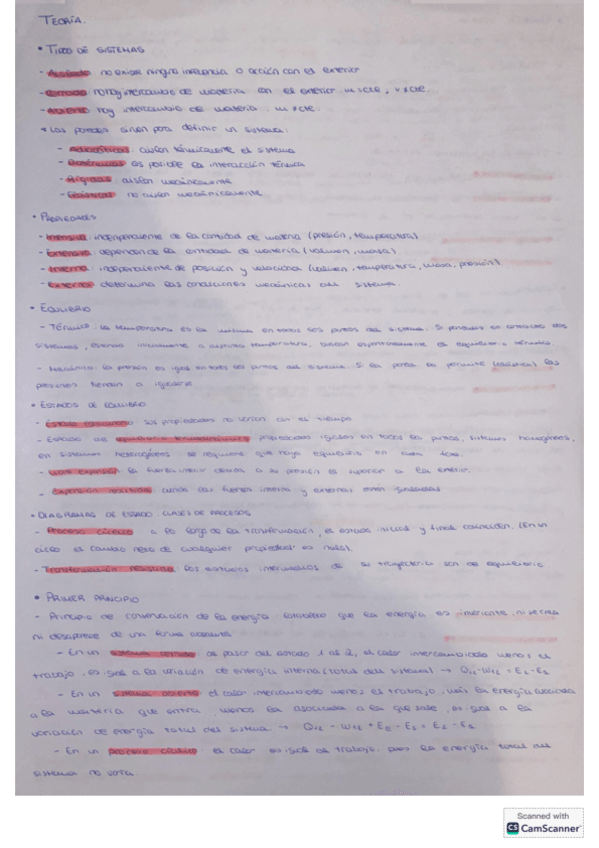 TEORÍA.
• TIPOS DE SISTEMAS
- Aislado: no existe ninguna influencia o acción con el exterior
- Cerrado: no hay intercambio de materia con el exterior. m = cte, v ≠ cte.
- Abierto: hay intercambio de materia. m ≠ cte.
* Las paredes sirven para definir un sistema:
- Adiabáticas: aíslan térmicamente el sistema
- Diatérmicas: es posible la interacción térmica
- Rígidas: aíslan mecánicamente
- no aíslan mecánicamente
• PROPIEDADES
- Intensiva: independiente de la cantidad de materia (presión, temperatura)
- Extensiva: dependen de la cantidad de materia (volumen, masa).
- Interna: independiente de posición y velocidad (volumen, temperatura, masa, presión).
- Externa: determina las condiciones mecánicas del sistema.
• EQUILIBRIO
- Térmico: la temperatura es la misma en todos los puntos del sistema. Si ponemos en contacto dos
sistemas, estando inicialmente a distinta temperatura, el equilibrio térmico.
- Mecánico: la presión es igual en todos los puntos del sistema. Si la pared lo permite (elástica) las
presiones tienden a igualarse
• ESTADOS DE EQUILIBRIO
- Estado estacionario: sus propiedades no varían con el tiempo
- Estado de equilibrio termodinámico: propiedades iguales en todos los puntos, sistemas homogéneos,
en sistemas heterogéneos se requiere que haya equilibrio en cada fase.
- expansión: la fuerza interior debida a su presión es superior a la exterior.
- Expansión resistida: cuando las fuerzas interna y externas están
• DIAGRAMAS DE ESTADO. CLASES DE PROCESOS
- Proceso cíclico: a lo largo de la transformación, el estado inicial y final coinciden. (En un
ciclo el cambio neto de cualquier propiedad es nulo).
- Transformación los estados intermedios de su trayectoria son de equilibrio
• PRIMER PRINCIPIO
- Principio de conservación de la energía: establece que la energía es ni se crea
ni desaparece de una forma
- En un sistema cerrado: al pasar del estado 1 al 2, el calor intercambiado menos el
trabajo, es igual a la variación de energía interna (total del sistema) → Q₁₂ - W₁₂ = E₂ - E₁
- En un sistema abierto: el calor intercambiado menos el trabajo, más la energía asociada
a la materia que entra, menos la asociada a la que sale, es igual a la
variación de energía total del sistema. → Q₁₂ - W₁₂ + Eₑ - Eₛ = E₂ - E₁
- En un proceso cíclico: el calor es igual al trabajo, pues la energía total del
sistema no varía.
Scanned with
CS CamScanner